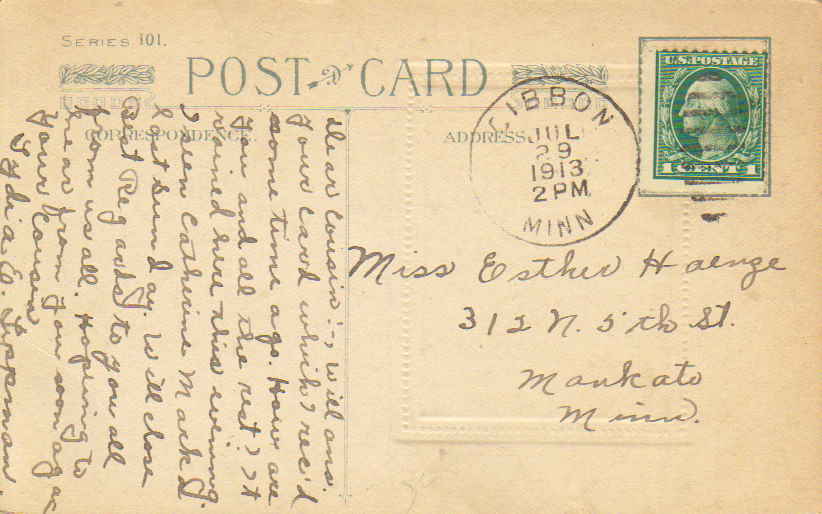 SERIES 101.
POST CARD
CORRESPONDENCE.
ADDRESS
U.S. POSTAGE
1 CENT 1
GIBBON
JUL
29
1913
2 PM
MINN
Miss Esther Haenze
312 N. 5th St.
Mankato
Minn.
Dear Cousin:, Will ans.
Your card which I rec'd
some time ago. How are
You and all the rest? It
rained here this evening.
I seen Catherine Mark
last Sunday. Will close
Best Regards to you all
from us all. Hopeing to
hear from you soon again
Your Cousin
Lydia E. Lippman.